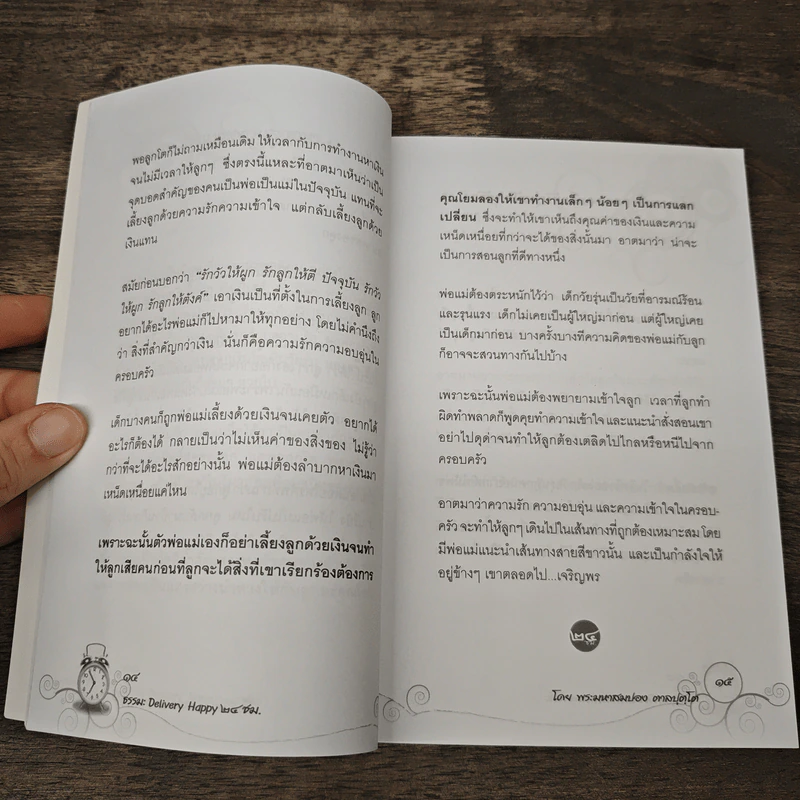 พอลูกโตก็ไม่ถามเหมือนเดิม ให้เวลากับการทำงานหาเงิน
จนไม่มีเวลาให้ลูกๆ ซึ่งตรงนี้แหละที่อาตมาเห็นว่าเป็น
จุดบอดสำคัญของคนเป็นพ่อเป็นแม่ในปัจจุบัน แทนที่จะ
เลี้ยงลูกด้วยความรักความเข้าใจ แต่กลับเลี้ยงลูกด้วย
เงินแทน
สมัยก่อนบอกว่า “รักวัวให้ผูก รักลูกให้ตี ปัจจุบัน รักวัว
ให้ผูก รักลูกให้ตังค์” เอาเงินเป็นที่ตั้งในการเลี้ยงลูก ลูก
อยากได้อะไรพ่อแม่ก็ไปหามาให้ทุกอย่าง โดยไม่คำนึงถึง
ว่า สิ่งที่สำคัญกว่าเงิน นั่นก็คือความรักความอบอุ่นใน
ครอบครัว
เด็กบางคนก็ถูกพ่อแม่เลี้ยงด้วยเงินจนเคยตัว อยากได้
อะไรก็ต้องได้ กลายเป็นว่าไม่เห็นค่าของสิ่งของ ไม่รู้ว่า
กว่าที่จะได้อะไรสักอย่างนั้น พ่อแม่ต้องลำบากหาเงินมา
เหน็ดเหนื่อยแค่ไหน
เพราะฉะนั้นตัวพ่อแม่เองก็อย่าเลี้ยงลูกด้วยเงินจนทำ
ให้ลูกเสียคนก่อนที่ลูกจะได้สิ่งที่เขาเรียกร้องต้องการ
๑๔
ธรรมะ Delivery Happy ๒๔ ชม.
คุณโยมลองให้เขาทำงานเล็กๆ น้อยๆ เป็นการแลก
เปลี่ยน ซึ่งจะทำให้เขาเห็นถึงคุณค่าของเงินและความ
เหน็ดเหนื่อยที่กว่าจะได้ของสิ่งนั้นมา อาตมาว่า น่าจะ
เป็นการสอนลูกที่ดีทางหนึ่ง
พ่อแม่ต้องตระหนักไว้ว่า เด็กวัยรุ่นเป็นวัยที่อารมณ์ร้อน
และรุนแรง เด็กไม่เคยเป็นผู้ใหญ่มาก่อน แต่ผู้ใหญ่เคย
เป็นเด็กมาก่อน บางครั้งบางทีความคิดของพ่อแม่กับลูก
ก็อาจจะสวนทางกันไปบ้าง
เพราะฉะนั้นพ่อแม่ต้องพยายามเข้าใจลูก เวลาที่ลูกทำ
ผิดทำพลาดก็พูดคุยทำความเข้าใจและแนะนำสั่งสอนเขา
อย่าไปดุด่าจนทำให้ลูกต้องเตลิดไปไกลหรือหนีไปจาก
ครอบครัว
อาตมาว่าความรัก ความอบอุ่น และความเข้าใจในครอบ-
ครัว จะทำให้ลูกๆ เดินไปในเส้นทางที่ถูกต้องเหมาะสม โดย
มีพ่อแม่แนะนำเส้นทางสายสีขาวนั้น และเป็นกำลังใจให้
อยู่ข้างๆ เขาตลอดไป...เจริญพร
๒๔
๑๕
โดย พระมหาสมปอง ตาลปุตฺโต